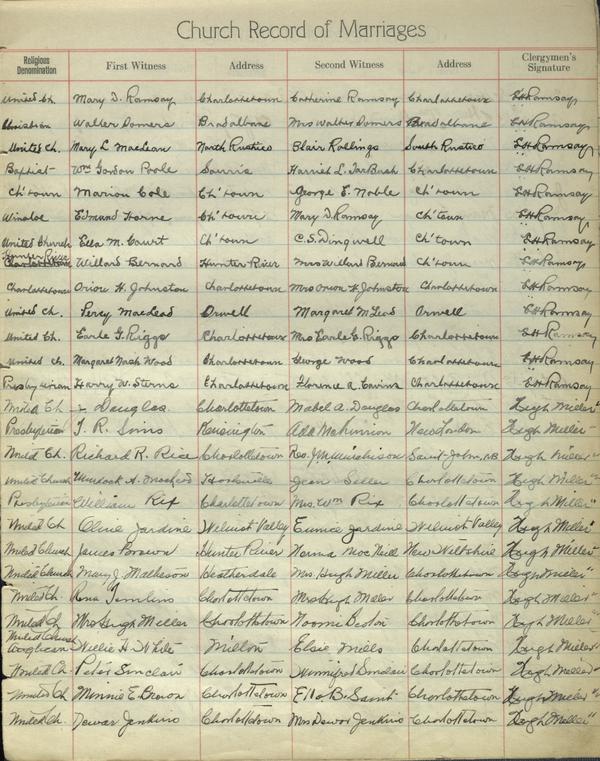 Church Record of Marriages
Religious Denomination First Witness Address Second Witness Address Clergymen's Signature
United Ch. Mary T. Ramsay Charlottetown Catherine Ramsay Charlottetown Ramsay
Christian Walter Domers Bradalbane Mrs Walter Domers Bradalbane Ramsay
United Ch. Mary L. MacLean North Rustico Blair Rollings South Rustico Ramsay
Baptist Wm Gordon Poole Souris Harriet L. Charlottetown Ramsay
Ch'town Marion Cole Ch'town George E. Noble Ch'town Ramsay
Winsloe Edmund Horne Ch'town Mary T. Ramsay Ch'town Ramsay
United Church Ella M. Court Ch'town C.S. Dingwell Ch'town Ramsay
Hunter River Willard Bernard Hunter River Mrs Willard Bernard Ch'town Ramsay
Charlottetown Orion H. Johnston Charlottetown Mrs Orion H. Johnston Charlottetown Ramsay
United Ch. Percy MacLeod Orwell Margaret McLeod Orwell Ramsay
United Ch. Earle G. Riggs Charlottetown Mrs Earle G. Riggs Charlottetown Ramsay
United Ch. Margaret Nash Wood Charlottetown George Wood Charlottetown Ramsay
Presbyterian Harry W. Sterns Charlottetown Florence A. Charlottetown Ramsay
United Ch Douglas Charlottetown Mabel A. Douglas Charlottetown Hugh Miller
Presbyterian T. R. Sims Kensington Ada McKinnon New London Hugh Miller
United Ch. Richard R. Rice Charlottetown Rev. J. M. Murchison Saint John, N.B Hugh Miller
United Church Murdock A. Jean Seller Charlottetown Hugh Miller
Presbyterian William Rix Charlottetown Mrs. Wm Rix Charlottetown Hugh Miller
United Ch Olive Jardine Wilmot Valley Eunice Jardine Wilmot Valley Hugh Miller
United Church James Brown Hunter River Norma MacNeill New Wiltshire Hugh Miller
United Church Mary J. Matheson Heatherdale Mrs. Hugh Miller Charlottetown Hugh Miller
United Ch. Una Tomlins Charlottetown Mrs Hugh Miller Charlottetown Hugh Miller
United Ch Mrs Hugh Miller Charlottetown Naomi Charlottetown Hugh Miller
United Church
Anglican Willie H. White Milton Elsie Mills Charlottetown Hugh Miller
United Ch. Peter Sinclair Charlottetown Winnifred Sinclair Charlottetown Hugh Miller
United Ch Minnie E. Brown Charlottetown Ella B. Saint Charlottetown Hugh Miller
United Ch. Dewar Jenkins Charlottetown Mrs Dewar Jenkins Charlottetown Hugh Miller